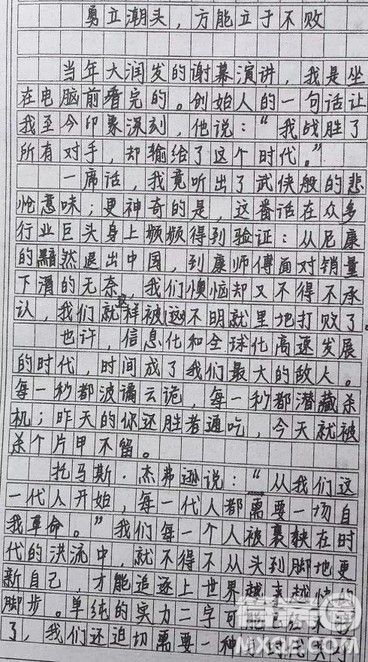 勇立潮头，方能立于不败
当年大润发的谢幕演讲，我是坐
在电脑前看完的。创始人的一句话让
我至今印象深刻，他说：“我战胜了
所有对手，却输给了这个时代。”
一席话，我竟听出了武侠般的悲
怆意味；更神奇的是，这番话在众多
行业巨头身上频频得到验证：从尼康
的黯然退出中国，到康师傅面对销量
下滑的无奈，我们懊恼却又不得不承
认，我们就这样被不明就里地打败了。
也许，信息化和全球化高速发展
的时代，时间成了我们最大的敌人。
每一秒都波谲云诡，每一秒都潜藏杀
机；昨天的你还胜者通吃，今天就被
杀个片甲不留。
托马斯·杰弗逊说：“从我们这
一代人开始，每一代人都需要一场自
我革命。”我们每一个人被裹挟在时
代的洪流中，就不得不从头到脚地更
新自己 才能追逐上世界越来越快的
脚步。单纯的实力二字可能
了，我们还迫切需要一种